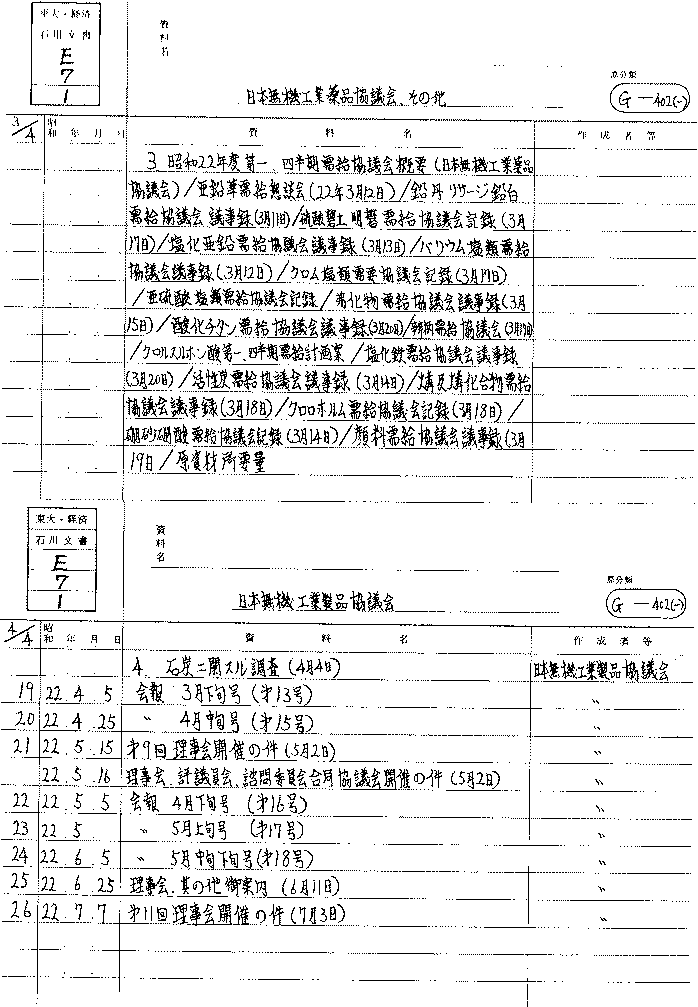 東大・経済
石川文書
E
7
1
資料名
日本無機工業薬品協議会、その他
原分類
G-402(一)
3/4
昭和 年 月 日 資 料 名 作 成 者 等
3 昭和22年度第一、四半期需給協議会概要(日本無機工業薬品
協議会)/亜鉛華需給懇談会(22年3月12日)/鉛丹リサージ鉛白
需給協議会議事録(3月11日)/硫酸礬土明礬需給協議会記録(3月
17日)/塩化亜鉛需給協議会議事録(3月13日)/バリウム塩類需給
協議会議事録(3月12日)/クロム塩類需要協議会記録(3月19日)
/亜硫酸塩類需給協議会記録/弗化物需給協議会議事録(3月
15日)/酸化チタン需給協議会議事録(3月20日)/需給協議会
/クロルスルホン酸第一、四半期需給計画案/塩化鉄需給協議会議事録
(3月20日)/活性炭需給協議会議事録(3月14日)/燐及燐化合物需給
協議会議事録(3月18日)/クロロホルム需給協議会記録(3月18日)/
硼砂硼酸需給協議会記録(3月14日)/顔料需給協議会議事録(3月
19日/原資材所要量
東大・経済
石川文書
E
7
1
資料名
日本無機工業製品協議会
原分類
G-402(一)
4/4
昭和 年 月 日 資 料 名 作 成 者 等
4 石炭ニ関スル調査(4月4日) 日本無機工業製品協議会
19 22 4 5 会報 3月下旬号(才13号) 〃
20 22.4.25 〃 4月中旬号(才15号) 〃
21 22.5.15 才9回理事会開催の件(5月2日) 〃
22.5.16 理事会、評議員会、諮問委員会合同協議会開催の件(5月2日) 〃
22 22.5 5 会報 4月下旬号(才16号) 〃
23 22 5 〃 5月上旬号(才17号) 〃
24 22.6 5 〃 5月中旬下旬号(才18号) 〃
25 22.6.25 理事会、其の他御案内(6月11日) 〃
26 22.7.7 才11回理事会開催の件(7月3日) 〃